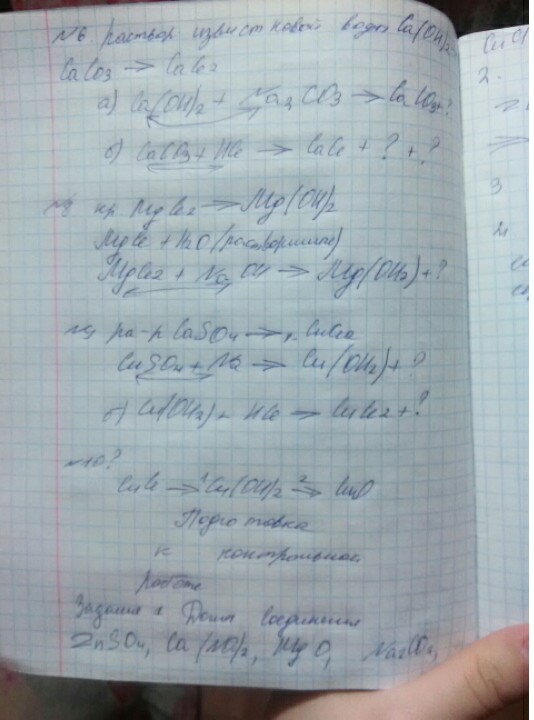 №6. раствор известковой воды Ca(OH)2
CaCO3 → CaCl2
а) Ca(OH)2 + Na2CO3 → CaCO3+?
б) CaCO3 + HCl → CaCl + ? + ?
кр MgCl2 → Mg(OH)2
MgCl + H2O (растворимые)
MgCl2 + NaOH → Mg(OH2)+?
ра-р CaSO4 →
CuSO4 + Na → Cu(OH2)+?
б) Cu(OH2) + HCl → CuCl2 + ?
№10?
CuCl →1 Cu(OH)2 2→ CuO
Подготовка
к контрольной
работе
Задания Даны соединения
ZnSO4, Ca(NO3)2, MgO, Na2CO3,
2.
3